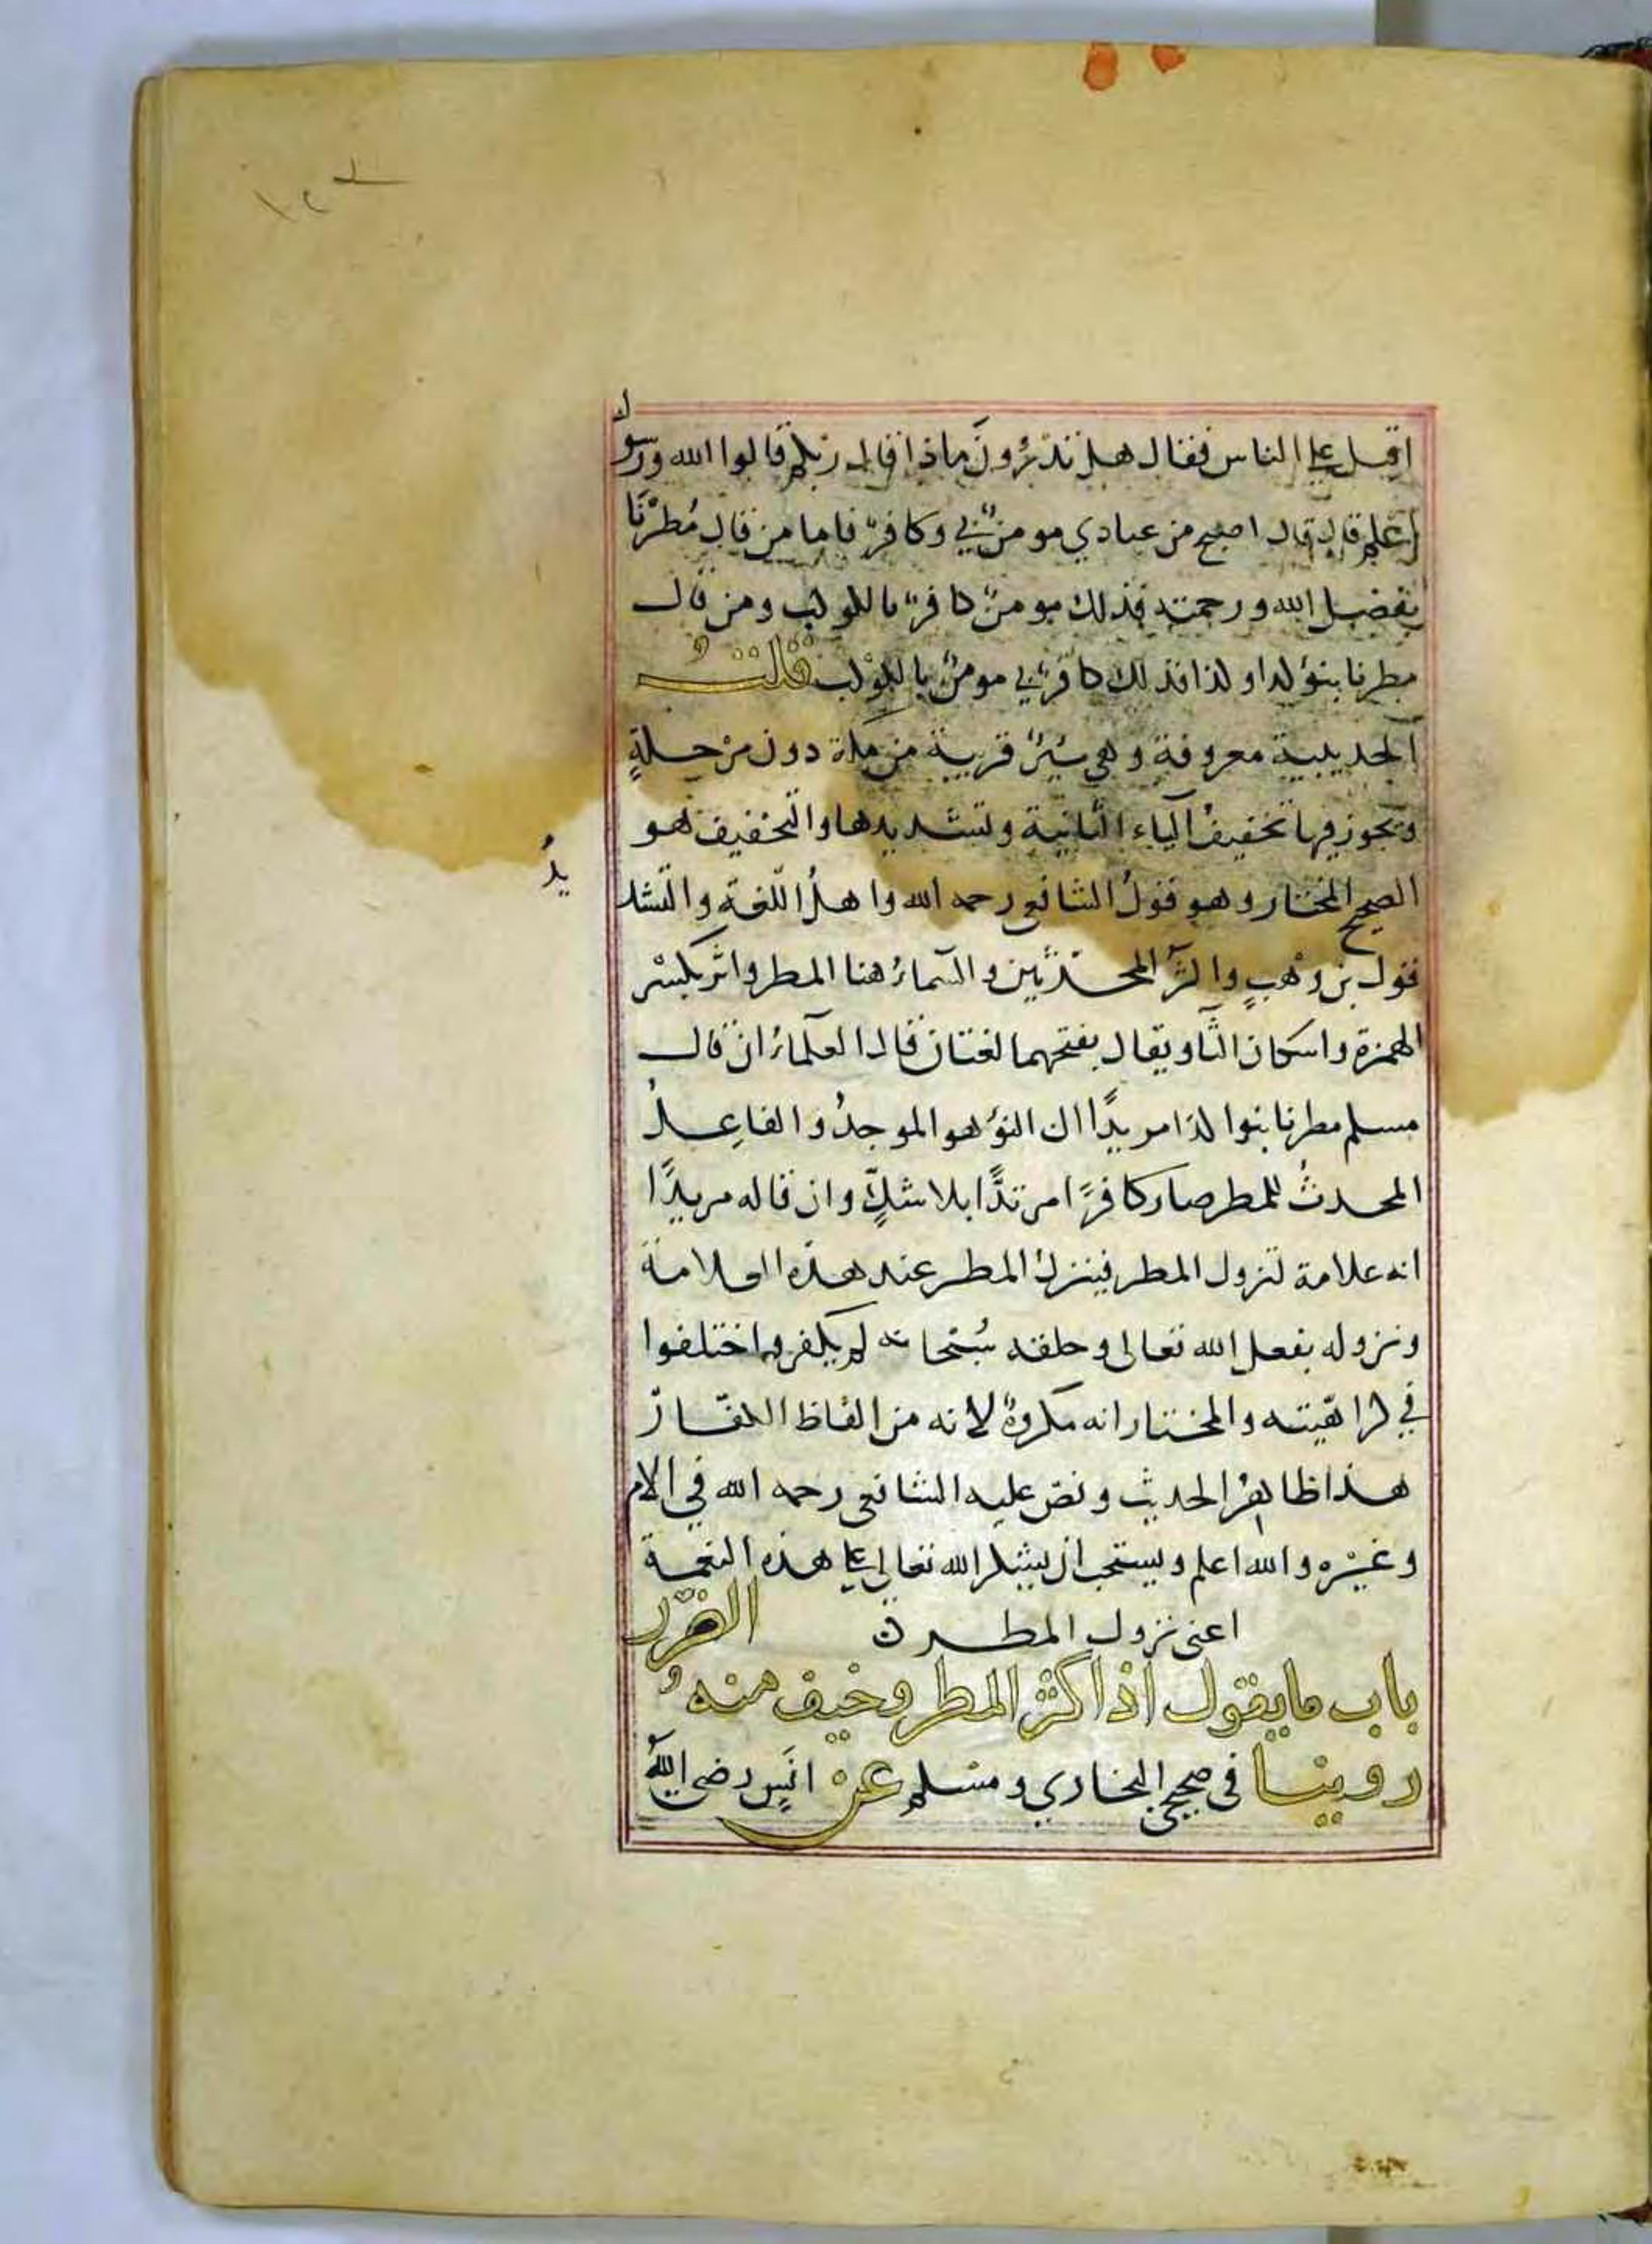 اقبل على الناس فقال هل تدرون ماذا قال ربكم قالوا الله ورسول
اعلم قال قال اصبح من عبادي مومن بي وكافر فاما من قال مُطرْنَا
بفضل الله ورحمته فذلك مومن كافر بالكوكب ومن قال
مطرنا بنؤ كذا وكذا فذلك كافر بي مومن بالكوكب قلت
الحديبية معروفة وهي بير قريبة من مكة دون مرحلةٍ
ويجوز فيها تخفيف الياء الثانية وتشديدها والتخفيف هو
الصحيح المختار وهو قولُ الشافعي رحمه الله واهلُ اللّغة والتشديدُ
قول بن وهبٍ واكثر المحدّثين والسماءُ هنا المطر واثر بكسْر
الهمزة واسكان الثا ويقال بفتحهما لغتان قال العلماءُ ان قال
مسلم مطرنا بنوا كذا مريدًا ان النؤ هو الموجدُ والفاعِلُ
المحدثُ للمطر صار كافرًا مرتدًّا بلا شكٍّ وان قاله مريدًا
انه علامة لنزول المطر فينزلُ المطر عند هذه العلامة
ونزوله بفعل الله تعالى وخلقه سُبْحانه لم يكفر واختلفوا
في كراهيته والمختار انه مكروهٌ لانه من الفاظ الكفّار
هذا ظاهرُ الحديث ونصّ عليه الشافعي رحمه الله في الام
وغيْره والله اعلم ويستحب ان يشكر الله تعالى على هذه النعمة
اعنى نزول المطر ن
باب ما يقول اذا كثر المطر وخيف منه الضرر
روينا في صحيحي البخاري ومسلم عن انَسٍ رضي اللهُ